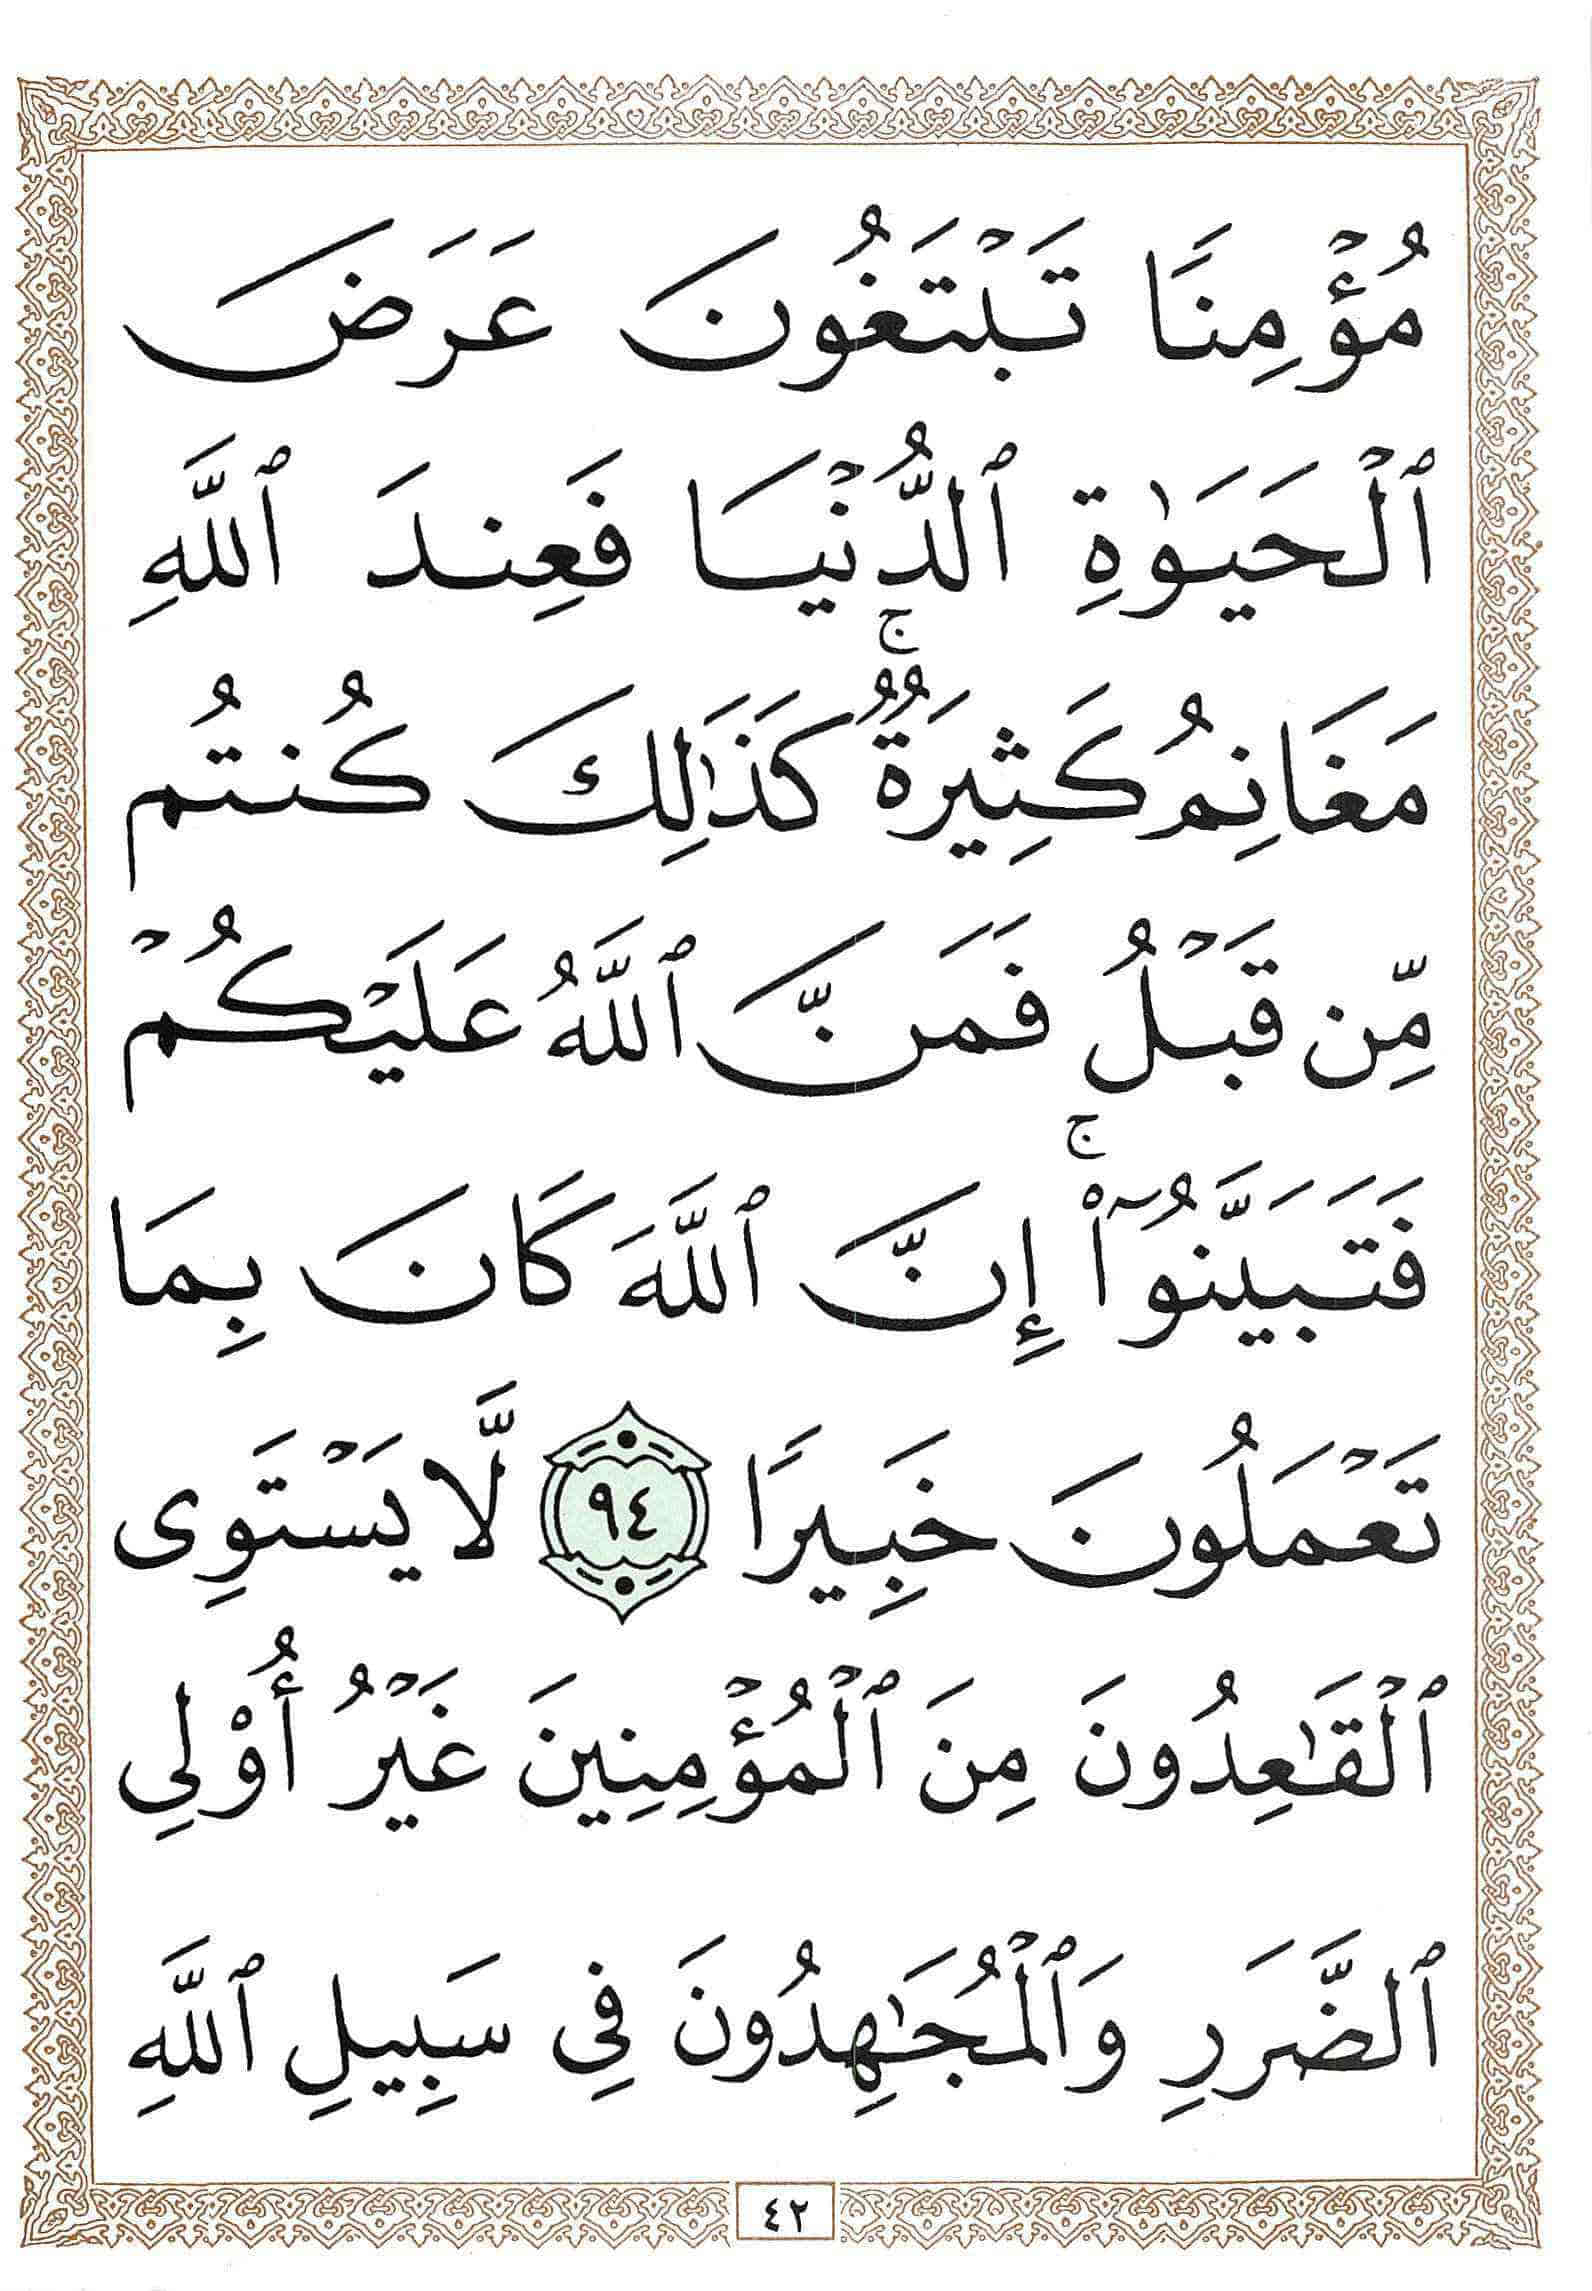 مُؤْمِنًا تَبْتَغُونَ عَرَضَ
ٱلْحَيَوٰةِ ٱلدُّنْيَا فَعِندَ ٱللَّهِ
مَغَانِمُ كَثِيرَةٌ ۚ كَذَٰلِكَ كُنتُم
مِّن قَبْلُ فَمَنَّ ٱللَّهُ عَلَيْكُمْ
فَتَبَيَّنُوٓا۟ ۚ إِنَّ ٱللَّهَ كَانَ بِمَا
تَعْمَلُونَ خَبِيرًا ٩٤ لَّا يَسْتَوِى
ٱلْقَـٰعِدُونَ مِنَ ٱلْمُؤْمِنِينَ غَيْرُ أُو۟لِى
ٱلضَّرَرِ وَٱلْمُجَـٰهِدُونَ فِى سَبِيلِ ٱللَّهِ
٤٢